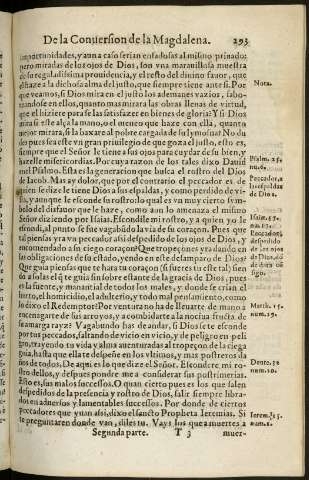 De la Conuersion de la Magdalena. 293
importunidades, y aun a caso serian enfadosas al mismo priuado:
pero miradas de los ojos de Dios, son vna marauillosa muestra
de su regaladissima prouidencia, y el resto del diuino fauor, que
el haze a la dichosa alma del justo, que siempre tiene ante si. Por
Nota.
que veamos, si Dios mira en el justo los ademanes vazios, sabo-
reandose en ellos, quanto mas mirara las obras llenas de virtud,
que el hiziere para se las satisfazer en bienes de gloria? Y si Dios
mira si este alça la mano, o el meneo que haze con ella, quanto
mejor mirara, si la baxare al pobre cargada de su lymosna? No du
des pues sea este vn gran priuilegio de que goza el justo, esto es,
siempre que el Señor le tiene a sus ojos para cuydar de su bien, y
hazelle misericordias. Por cuya razon de los tales dixo Dauid
Psalm. 23.
num.6.
mel Psalmo. Esta es la generacion que busca el rostro del Dios
de Iacob. Mas ay dolor, que por el contrario el peccador es de
Peccador, a
las espaldas
de Dios.
quien se dize le tiene Dios a sus espaldas, y como perdido de vi-
sta, y aun que le esconde su rostro: lo qual es vn muy cierto sym-
bolo del disfauor que le haze, como aun lo amenaza el mismo
Señor diziendo por Isaias. Escondile mi rostro, y a quien yo le
escondi, al punto se fue vagabũdo la via de su coraçon. Pues que
tal piensas yra vn peccador assi despedido de los ojos de Dios, y
encomendado a su ciego coraçon? Que tropeçones yra dando en
las obligaciones de su estado, yendo en este desamparo de Dios?
Que guia piensas que te hara tu coraçon (si fueres tu este tal) sien
do a solas el q̃ te guia sin sobre estante de la gracia de Dios, pues
es la fuente, y minantial de todos los males, y donde se crian el
hurto, el homicidio, el adulterio, y todo mal pensamiento, como
Matth. 15.
num. 19.
lo dixo el Redemptor? Por ventura no ha de lleuarte de mano a
encenagarte de sus arroyos, y a combidarte a la nociua fructa de
su amarga rayz? Vagabundo has de andar, si Dios se te esconde
por tus peccados, saltando de vicio en vicio, y de peligro en peli
gro, trayendo tu vida y alma auenturadas al tropeçon de la ciega
guia, hasta que ella te despeñe en los vltimos, y mas postreros da
ños de todos. De aqui es lo que dize el Señor. Escondere mi ro-
num.20.
stro dellos, y despues pondre me a considerar sus postrimerias.
Esto es, sus malos successos. O quan cierto pues es los que salen
despedidos de la presencia y rostro de Dios, salir siempre libra-
dos en aduersos y lamentables successos. Por donde de ciertos
peccadores que yuan assi, dixo el sancto Propheta Ieremias. Si
te preguntaren donde van, diles tu. Vays los que a muertes a
Segunda parte. T 3 muer-